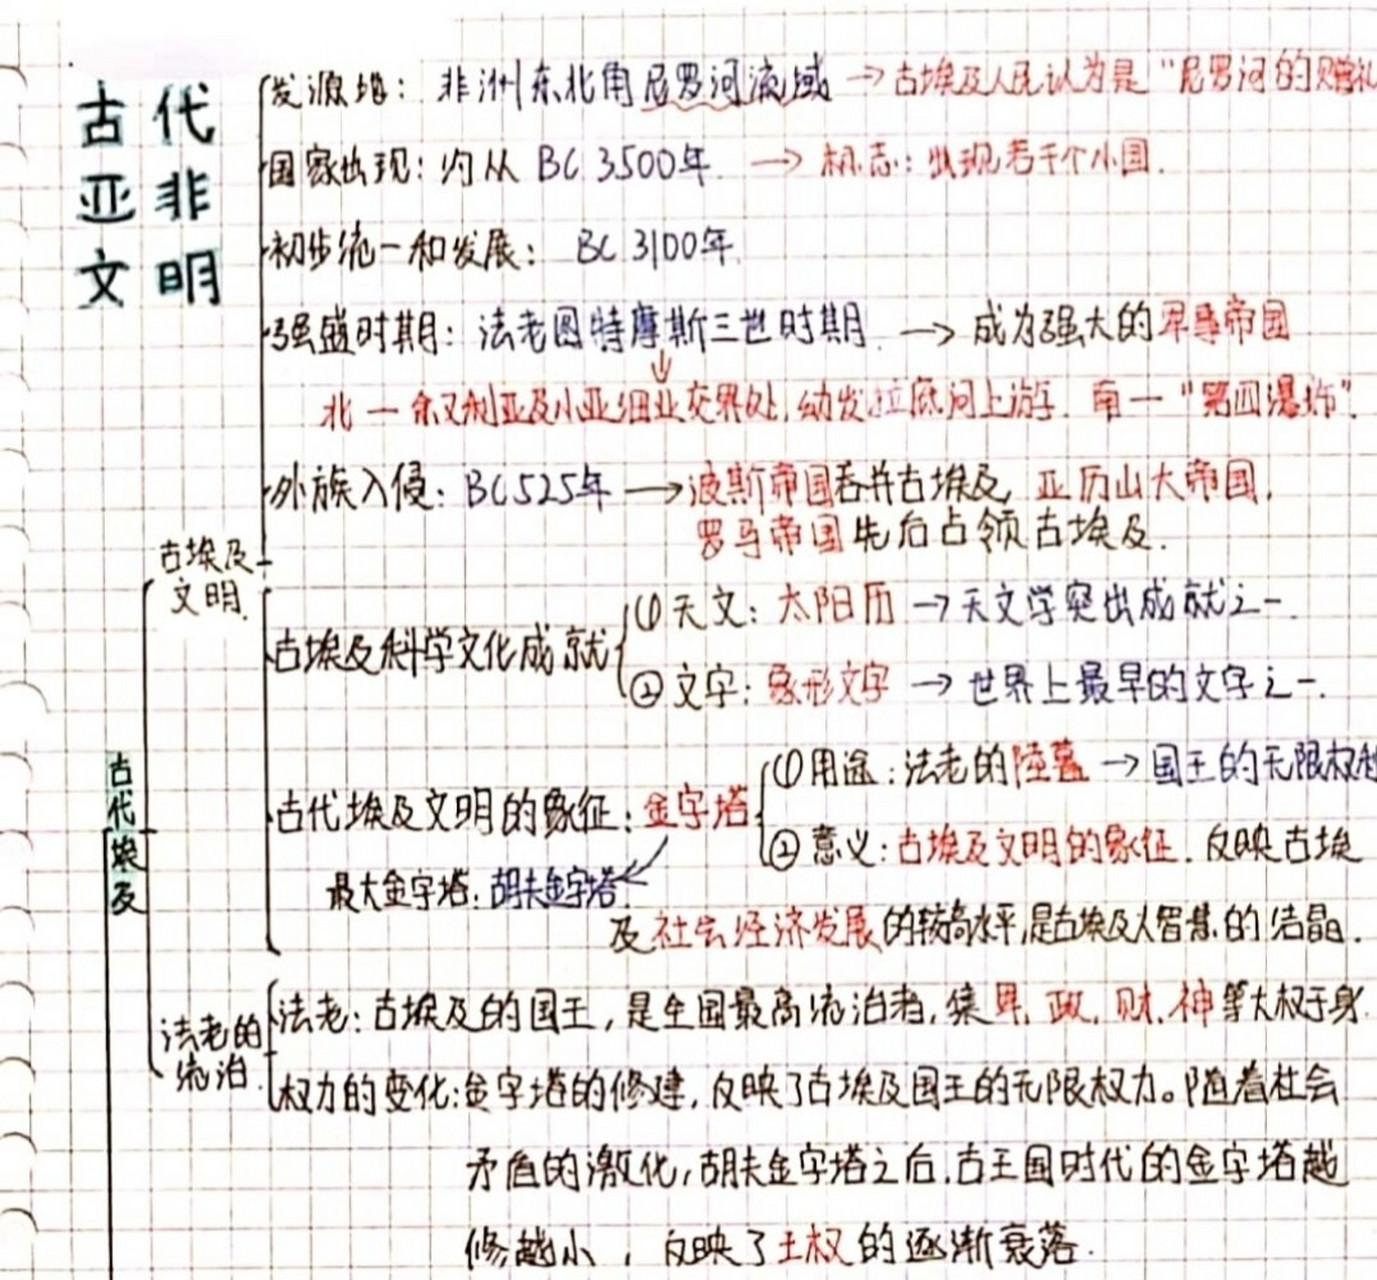 古代
亚非
文明
发源地：非洲东北角尼罗河流域 → 古埃及人民认为是“尼罗河的赠礼
国家出现：约从 BC 3500年 → 标志：出现若干个小国.
初步统一和发展： BC 3100年.
强盛时期：法老图特摩斯三世时期. → 成为强大的军事帝国
北一叙利亚及小亚细亚交界处,幼发拉底河上游. 南一“第四瀑布”.
外族入侵：BC525年 → 波斯帝国吞并古埃及, 亚历山大帝国,
罗马帝国先后占领古埃及.
古埃及
文明.
古埃及科学文化成就
① 天文：太阳历 → 天文学突出成就之一.
② 文字：象形文字 → 世界上最早的文字之一.
古代埃及
古代埃及文明的象征：金字塔
① 用途：法老的陵墓 → 国王的无限权
② 意义：古埃及文明的象征. 反映古埃
最大金字塔：胡夫金字塔.
及社会经济发展的较高水平,是古埃及人智慧的结晶.
法老的
统治.
法老：古埃及的国王，是全国最高统治者, 集军, 政, 财, 神等大权于身.
权力的变化：金字塔的修建, 反映了古埃及国王的无限权力。随着社会
矛盾的激化,胡夫金字塔之后,古王国时代的金字塔越
修越小，反映了王权的逐渐衰落.